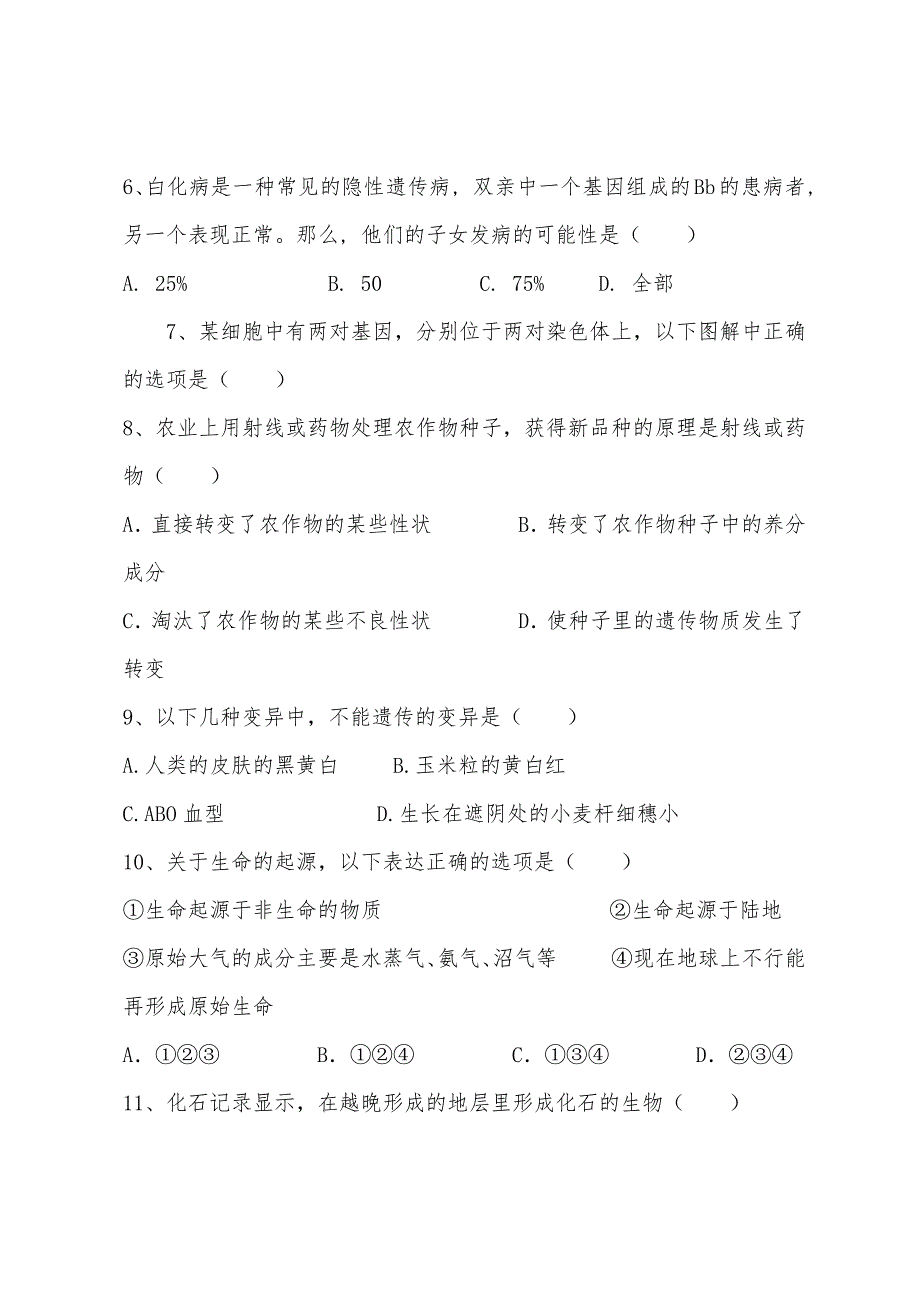 6、白化病是一种常见的隐性遗传病，双亲中一个基因组成的Bb的患病者，
另一个表现正常。那么，他们的子女发病的可能性是（　　）
A. 25%　　B. 50　　C. 75%　　D. 全部
7、某细胞中有两对基因，分别位于两对染色体上，以下图解中正确
的选项是（　　）
8、农业上用射线或药物处理农作物种子，获得新品种的原理是射线或药
物（　　）
A．直接转变了农作物的某些性状　　B．转变了农作物种子中的养分
成分
C．淘汰了农作物的某些不良性状　　D．使种子里的遗传物质发生了
转变
9、以下几种变异中，不能遗传的变异是（　　）
A.人类的皮肤的黑黄白　　B.玉米粒的黄白红
C.ABO血型　　D.生长在遮阴处的小麦杆细穗小
10、关于生命的起源，以下表达正确的选项是（　　）
①生命起源于非生命的物质　　②生命起源于陆地
③原始大气的成分主要是水蒸气、氨气、沼气等　　④现在地球上不行能
再形成原始生命
A．①②③　　B．①②④　　C．①③④　　D．②③④
11、化石记录显示，在越晚形成的地层里形成化石的生物（　　）